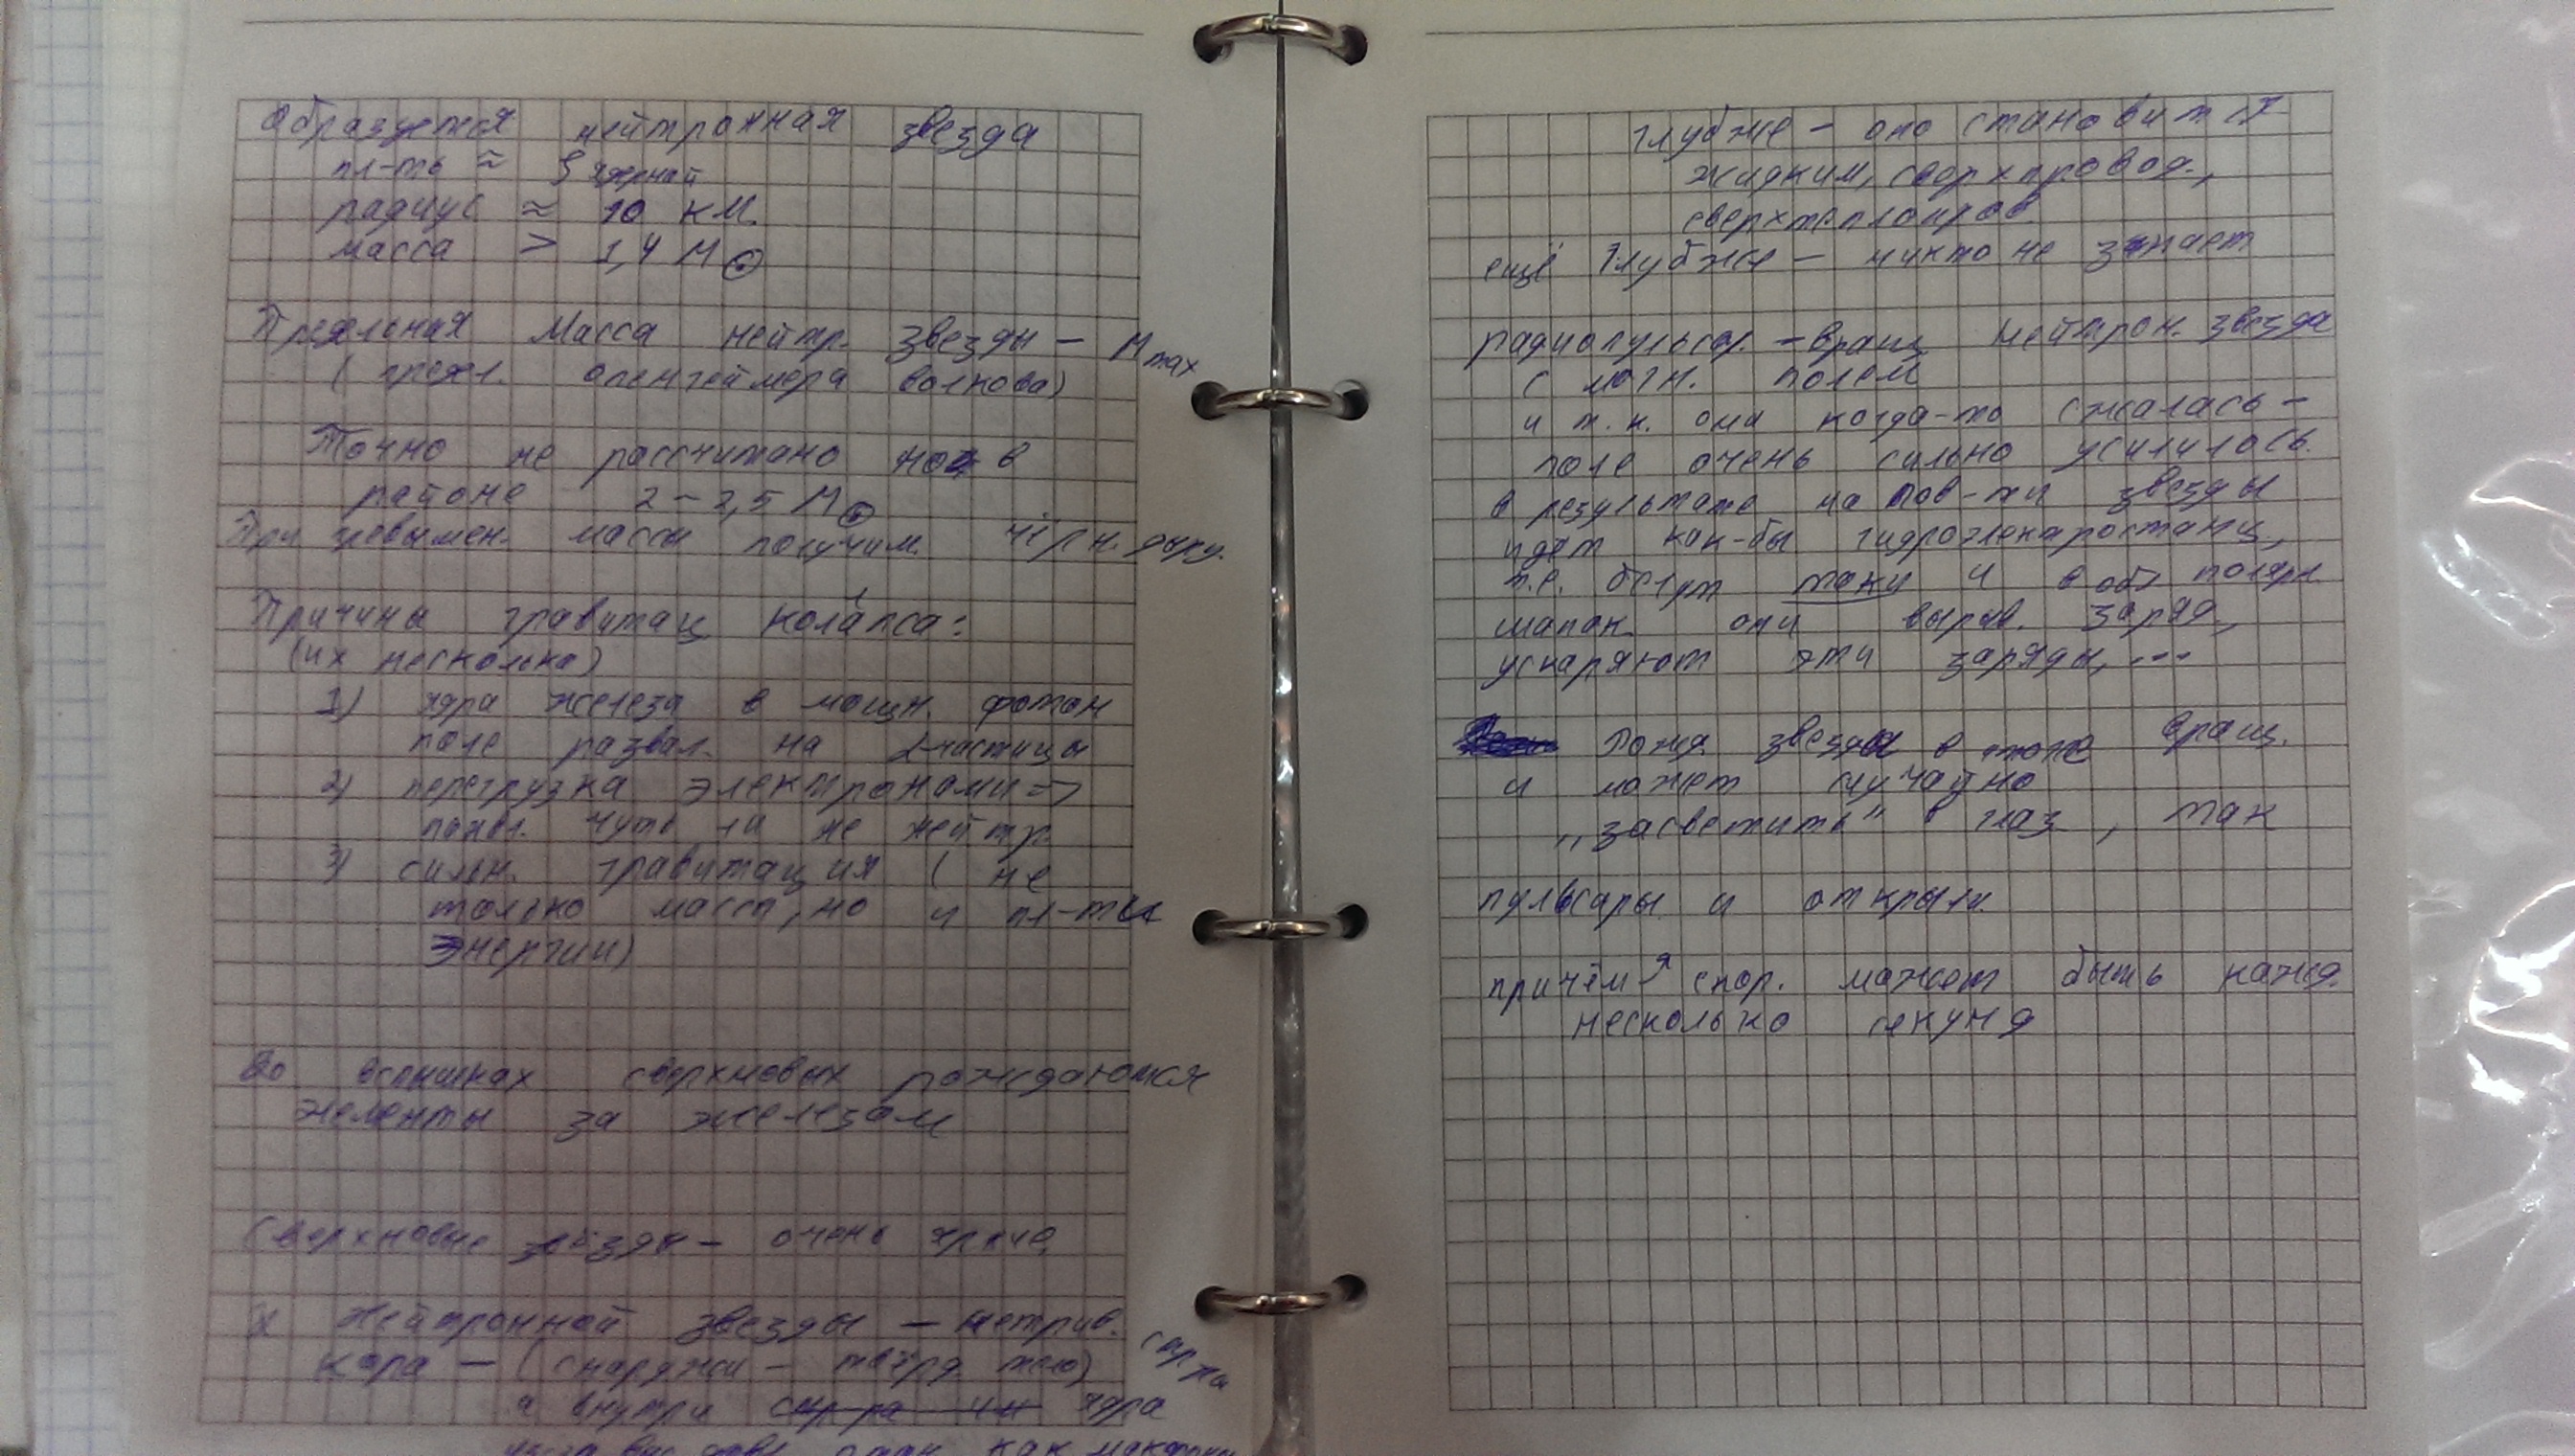 Образуется нейтронная звезда
пл-ть ≈ ρ ядерной
радиус ≈ 10 км.
масса > 1,4 M☉
Предельная масса нейтр. звезды – M max
(предел. опенгеймера волкова)
Точно не рассчитано но в
районе 2 – 2,5 M☉
При превышен. массы получим. чёрн. дыру.
Причина гравитац колапса:
(их несколько)
1) ядра железа в мощн. фотон
поле развал. на α-частицы
2) перегрузка электронами =>
появл. чуть ли не нейтр.
3) сильн. гравитация ( не
только масса, но и пл-ть
энергии)
Во вспышках сверхновых рождаются
элементы за железом
Сверхновые звёзды – очень яркие
У нейтронной звезды – нетрив.
кора – (снаружи – твёрд тело)
а внутри ядра
как макароны
глубже – оно становится
жидким, сверхпровод.,
сверхтеплопров.
ещё глубже – никто не знает
радиопульсар. – вращ. нейтрон. звезда
с магн. полем
и т. к. она когда-то сжалась –
поле очень сильно усилилось.
в результате на пов-ти звезды
идёт как-бы гидроэлекростанц,
т.е. бегут токи и в обл полярн.
шапок они вырыв. заряд.,
ускоряют эти заряды, ...
звезда в вращ.
и может случайно
„засветить" в глаз , так
пульсары и открыли.
причём скор. может быть кажд.
несколько секунд